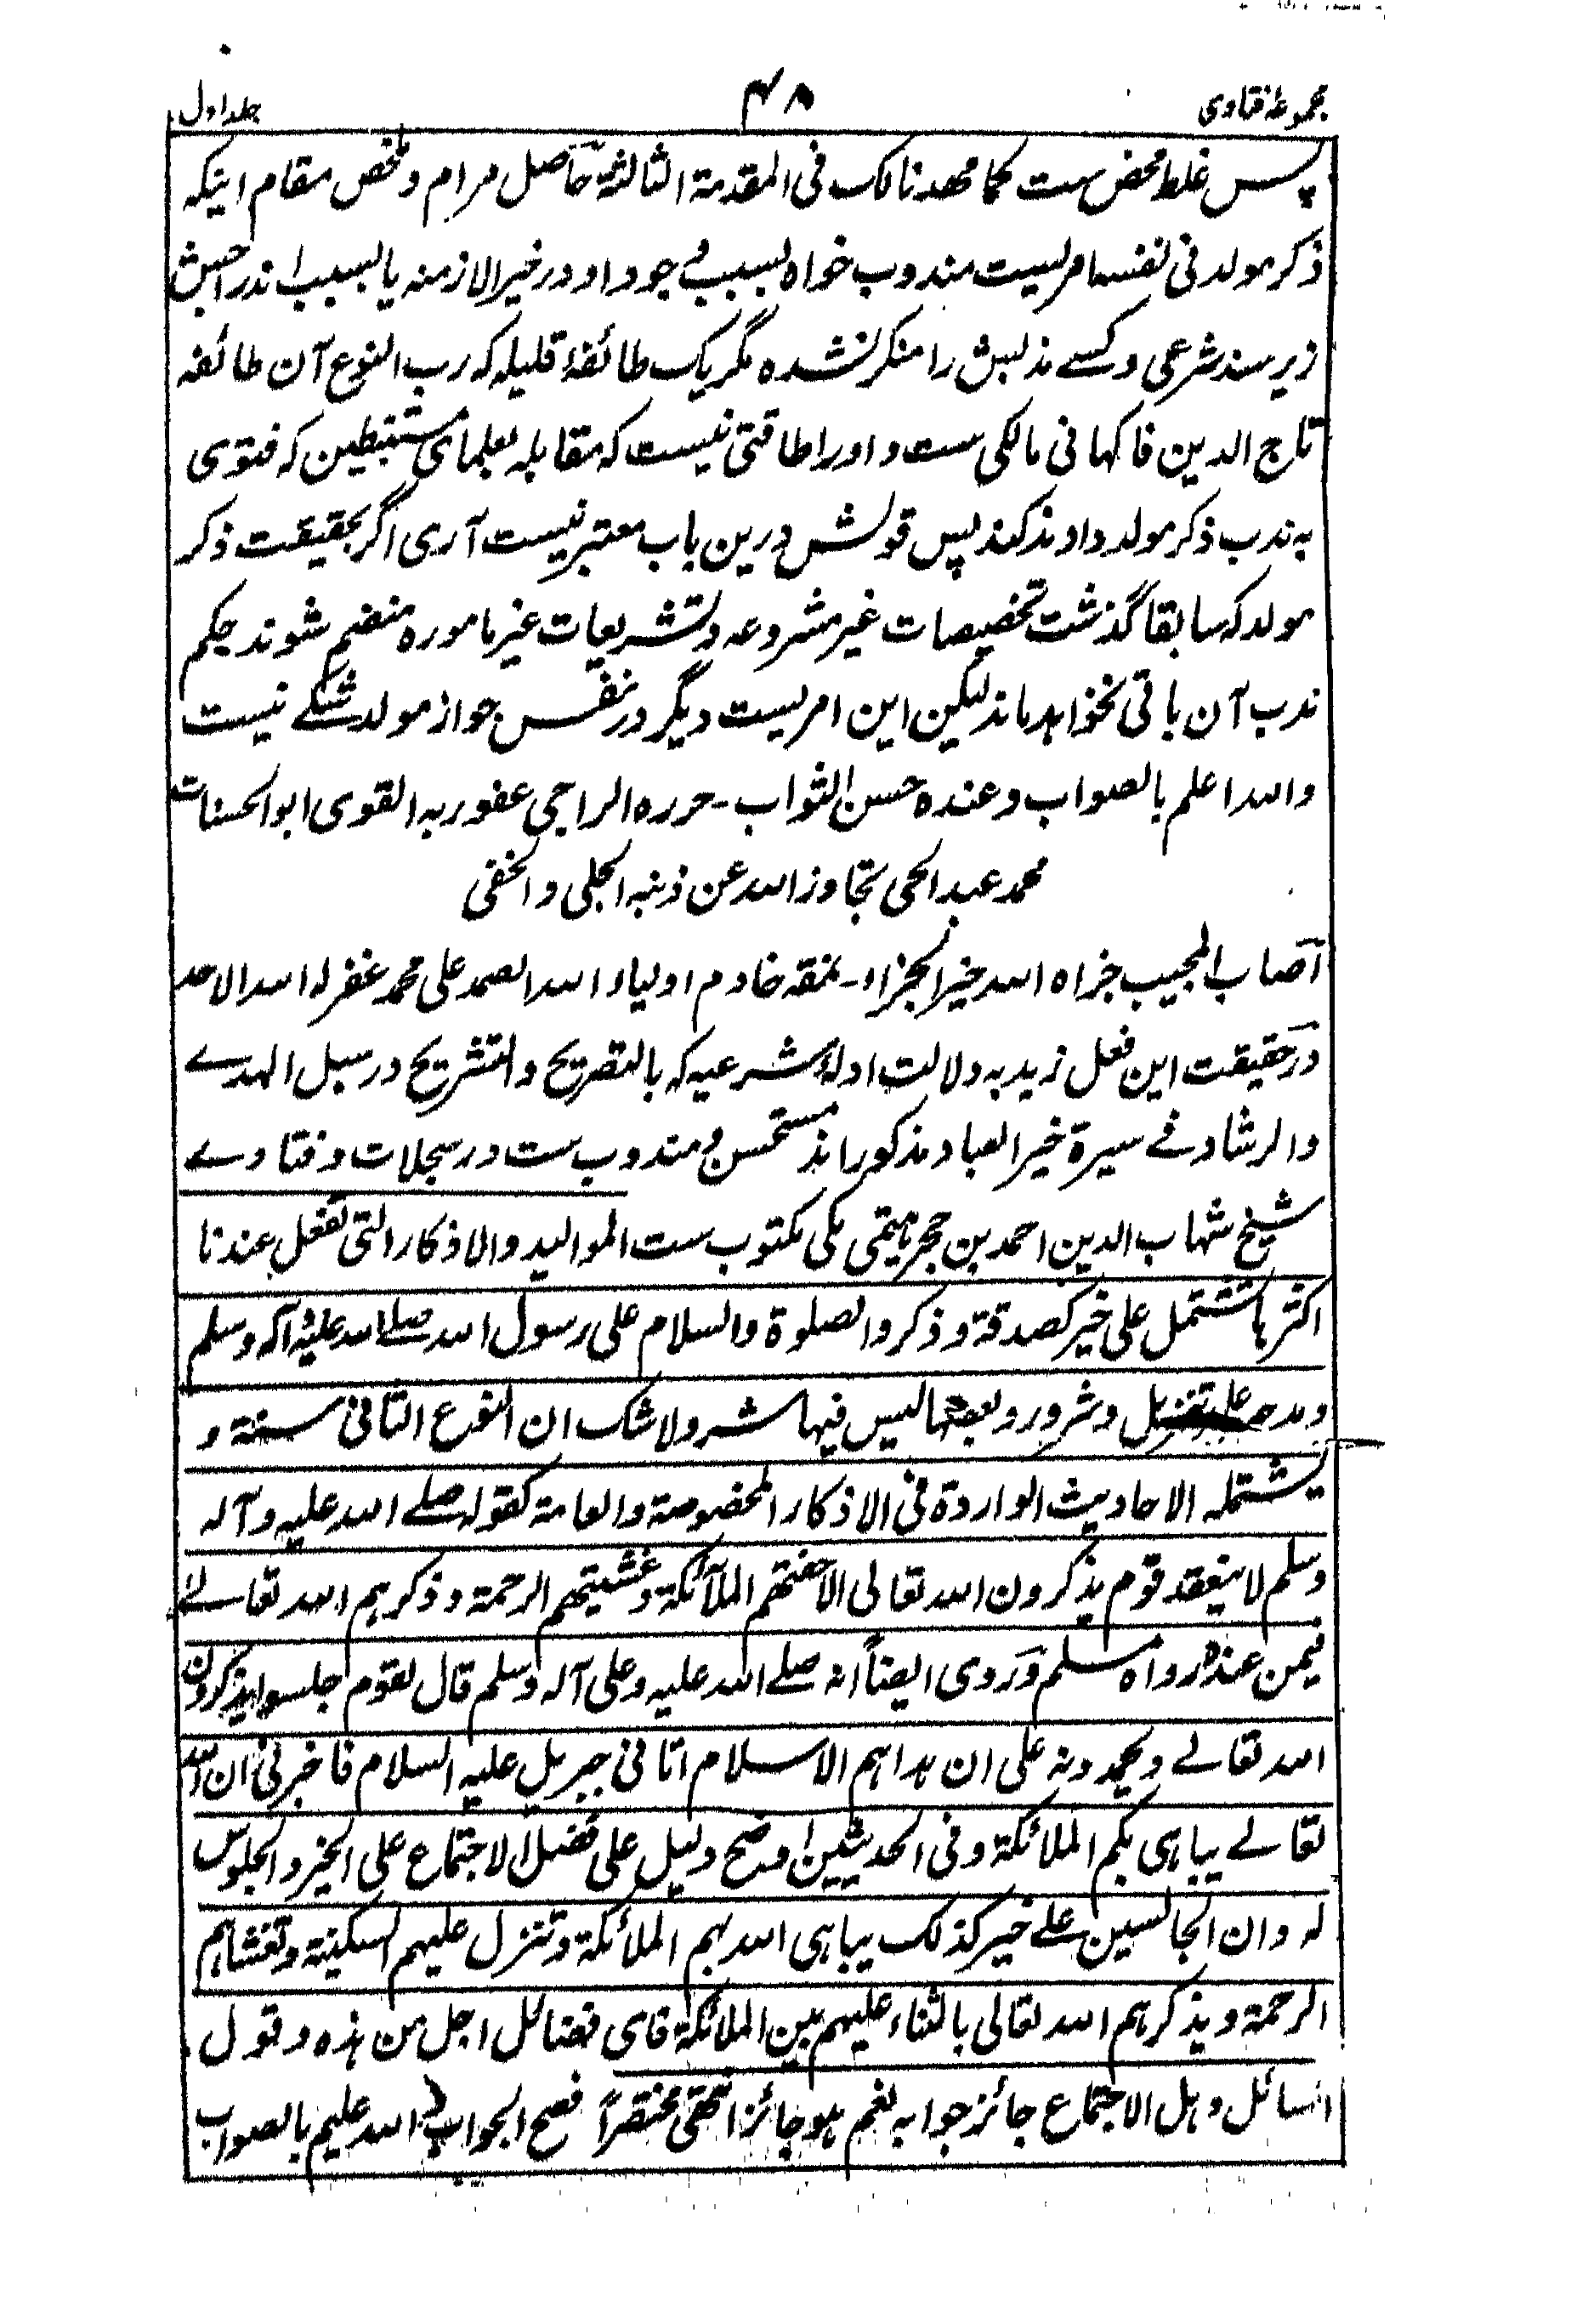 مجموعۂ فتاوی
۴۸
جلد اول
پس غلط محض ست کما مهدنا لک فی المقدمة الثالثة حاصل مرام و ملخص مقام اینکہ
ذکر مولد فی نفسہا مریست مندوب خواہ بسبب وجود او در خیر الازمنہ یا بسبب اندراجش
زیر سند شرعی و کسے ندبش را منکر نشدہ مگر یک طائفۂ قلیلہ کہ رب النوع آن طائفہ
تاج الدین فاکہانی مالکی ست و او را طاقتی نیست کہ مقابلہ بعلمای مستنبطین کہ فتوی
بہ ندب ذکر مولد دادند کند پس قولش درین باب معتبر نیست آری اگر بحقیقت ذکر
مولد کہ سابقا گذشت تخصیصات غیر مشروعہ و تشریعات غیر مامورہ منضم شوند حکم
ندب آن باقی نخواہد ماند لیکن این امریست دیگر در نفس جواز مولد شکے نیست
واللہ اعلم بالصواب وعندہ حسن الثواب - حررہ الراجی عفو ربہ القوی ابو الحسنات
محمد عبد الحی تجاوز اللہ عن ذنبہ الجلی والخفی
اصاب المجیب جزاہ اللہ خیر الجزاء - نمقہ خادم اولیاء اللہ الصمد علی محمد غفر لہ اللہ الاحد
در حقیقت این فعل زید بہ دلالت ادلۂ شرعیہ کہ بالتصریح والتشریح در سبل الہدے
والرشاد فے سیرة خیر العباد مذکور اند مستحسن و مندوب ست در سجلات و فتاوے
شیخ شہاب الدین احمد بن حجر ہیتمی مکی مکتوب ست الموالید والاذکار التی تفعل عندنا
اکثرہا تشتمل علی خیر کصدقة وذکر والصلوة والسلام علی رسول اللہ صلے اللہ علیہ وآلہ وسلم
ومدحہ وشرور وبعضہا لیس فیہا شر ولا شک ان النوع الثانی سنة و
یشتملہ الاحادیث الواردة فی الاذکار المخصوصة والعامة کقولہ صلے اللہ علیہ وآلہ
وسلم لا ینعقد قوم یذکرون اللہ تعالی الا حفتہم الملآئکة وغشیتہم الرحمة وذکرہم اللہ تعالے
فیمن عندہ رواہ مسلم وروی ایضاً انہ صلے اللہ علیہ وعلی آلہ وسلم قال لقوم جلسوا یذکرون
اللہ تعالے ویحمدونہ علی ان ہداہم الاسلام اتانی جبریل علیہ السلام فاخبرنی ان اللہ
تعالے یباہی بکم الملائکة وفی الحدیثین اوضح دلیل علی فضل الاجتماع علی الخیر والجلوس
لہ وان الجالسین علے خیر کذلک یباہی اللہ بہم الملائکة وتنزل علیہم السکینة وتغشاہم
الرحمة ویذکرہم اللہ تعالی بالثناء علیہم بین الملائکة فای فضائل اجل من ہذہ وقول
السائل وہل الاجتماع جائز جوابہ نعم ہو جائز انتہی مختصراً فصح الجواب واللہ علیم بالصواب